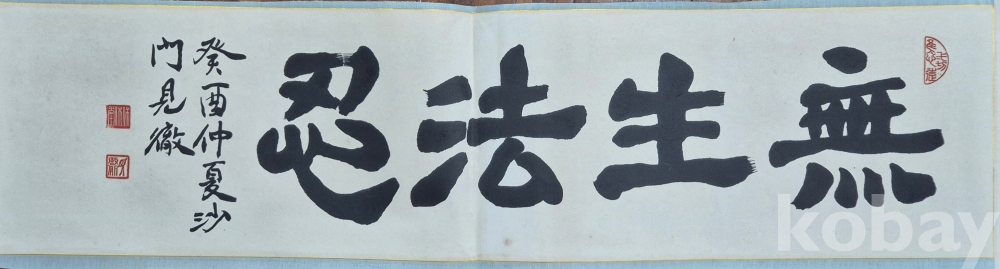 無生法忍
癸酉仲夏沙
門見徹
kobay